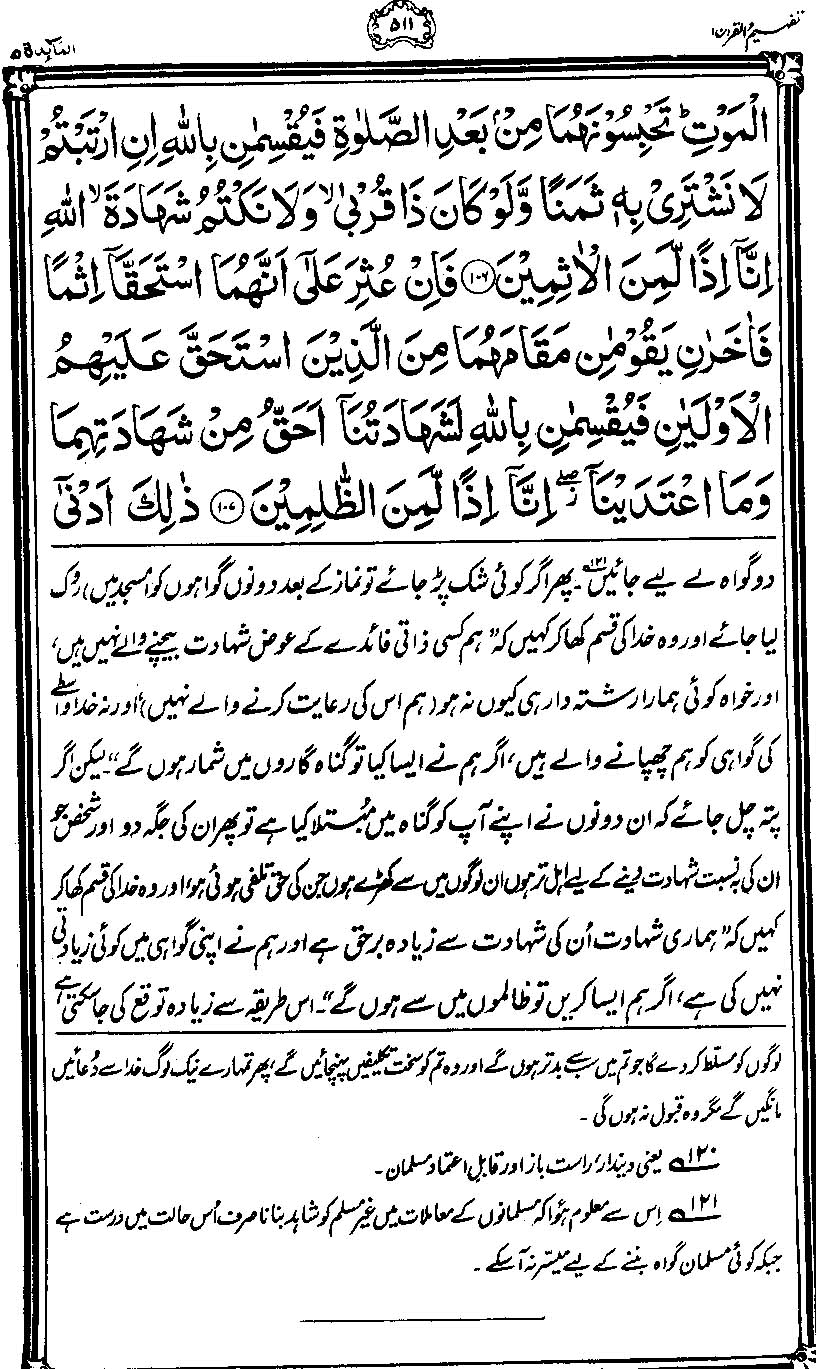 تفہیم القرآن ۱
۵۱۱
المآئدۃ ۵
الْمَوْتِ ؕ تَحْبِسُوْنَهُمَا مِنْۢ بَعْدِ الصَّلٰوةِ فَيُقْسِمٰنِ بِاللّٰهِ اِنِ ارْتَبْتُمْ
لَا نَشْتَرِيْ بِهٖ ثَمَنًا وَّلَوْ كَانَ ذَا قُرْبٰى ۙ وَلَا نَكْتُمُ شَهَادَةَ ۙ اللّٰهِ
اِنَّاۤ اِذًا لَّمِنَ الْاٰثِمِيْنَ ﴿۱۰۶﴾ فَاِنْ عُثِرَ عَلٰۤى اَنَّهُمَا اسْتَحَقَّاۤ اِثْمًا
فَاٰخَرٰنِ يَقُوْمٰنِ مَقَامَهُمَا مِنَ الَّذِيْنَ اسْتَحَقَّ عَلَيْهِمُ
الْاَوْلَيٰنِ فَيُقْسِمٰنِ بِاللّٰهِ لَشَهَادَتُنَاۤ اَحَقُّ مِنْ شَهَادَتِهِمَا
وَمَا اعْتَدَيْنَاۤ ۖ اِنَّاۤ اِذًا لَّمِنَ الظّٰلِمِيْنَ ﴿۱۰۷﴾ ذٰلِكَ اَدْنٰۤى
دو گواہ لے لیے جائیں۱۲۱۔ پھر اگر کوئی شک پڑ جائے تو نماز کے بعد دونوں گواہوں کو (مسجد میں) روک
لیا جائے اور وہ خدا کی قسم کھا کر کہیں کہ "ہم کسی ذاتی فائدے کے عوض شہادت بیچنے والے نہیں ہیں،
اور خواہ کوئی ہمارا رشتہ دار ہی کیوں نہ ہو (ہم اس کی رعایت کرنے والے نہیں) اور نہ خدا واسطے
کی گواہی کو ہم چھپانے والے ہیں، اگر ہم نے ایسا کیا تو گناہ گاروں میں شمار ہوں گے"۔ لیکن اگر
پتہ چل جائے کہ ان دونوں نے اپنے آپ کو گناہ میں مُبتلا کیا ہے تو پھر ان کی جگہ دو اور شخص جو
ان کی بہ نسبت شہادت دینے کے لیے اہل تر ہوں ان لوگوں میں سے کھڑے ہوں جن کی حق تلفی ہوئی ہو، اور وہ خدا کی قسم کھا کر
کہیں کہ "ہماری شہادت اُن کی شہادت سے زیادہ برحق ہے اور ہم نے اپنی گواہی میں کوئی زیادتی
نہیں کی ہے، اگر ہم ایسا کریں تو ظالموں میں سے ہوں گے"۔ اس طریقہ سے زیادہ توقع کی جا سکتی ہے
لوگوں کو مسلّط کر دے گا جو تم میں سب سے بدتر ہوں گے اور وہ تم کو سخت تکلیفیں پہنچائیں گے، پھر تمہارے نیک لوگ خدا سے دُعائیں
مانگیں گے مگر وہ قبول نہ ہوں گی۔
۱۲۰؎ یعنی دیندار، راست باز اور قابلِ اعتماد مسلمان۔
۱۲۱؎ اِس سے معلوم ہوا کہ مسلمانوں کے معاملات میں غیر مسلم کو شاہد بنانا صرف اُس حالت میں درست ہے
جبکہ کوئی مسلمان گواہ بننے کے لیے میسّر نہ آ سکے۔